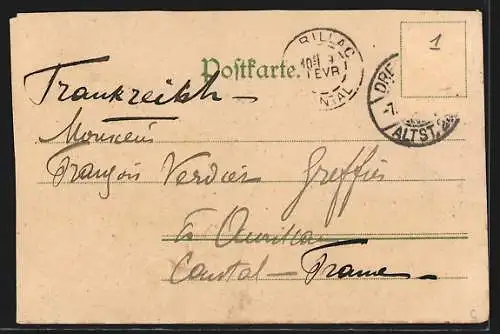 RILLAC
10E
FEVR
NTAL
1
Postkarte.
DRE
-7.
ALTST.
Frankreich —
Monsieur
François Verdier Greffier
à Aurillac
Cantal — France —